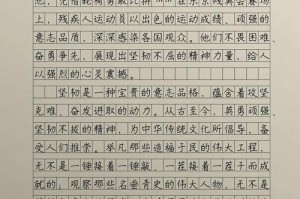 上，残疾人运动员以出色的运动成绩，顽强的
意志品质，深深感染各国观众。他们不畏困难、
奋勇争先，展现出坚韧不屈的精神力量，给人
以强烈的心灵震撼。
坚韧是一种宝贵的意志品格，蕴含着攻坚
克难、奋发进取的动力。从古至今，英勇顽强、
坚韧不拔的精神，为中华传统文化所倡导、备
受人们推崇。举凡那些造福于民的伟大工程，
无不是一锤接着一锤敲、一茬接着一茬干而成
就的；观察那些名垂青史的伟大人物，无不是